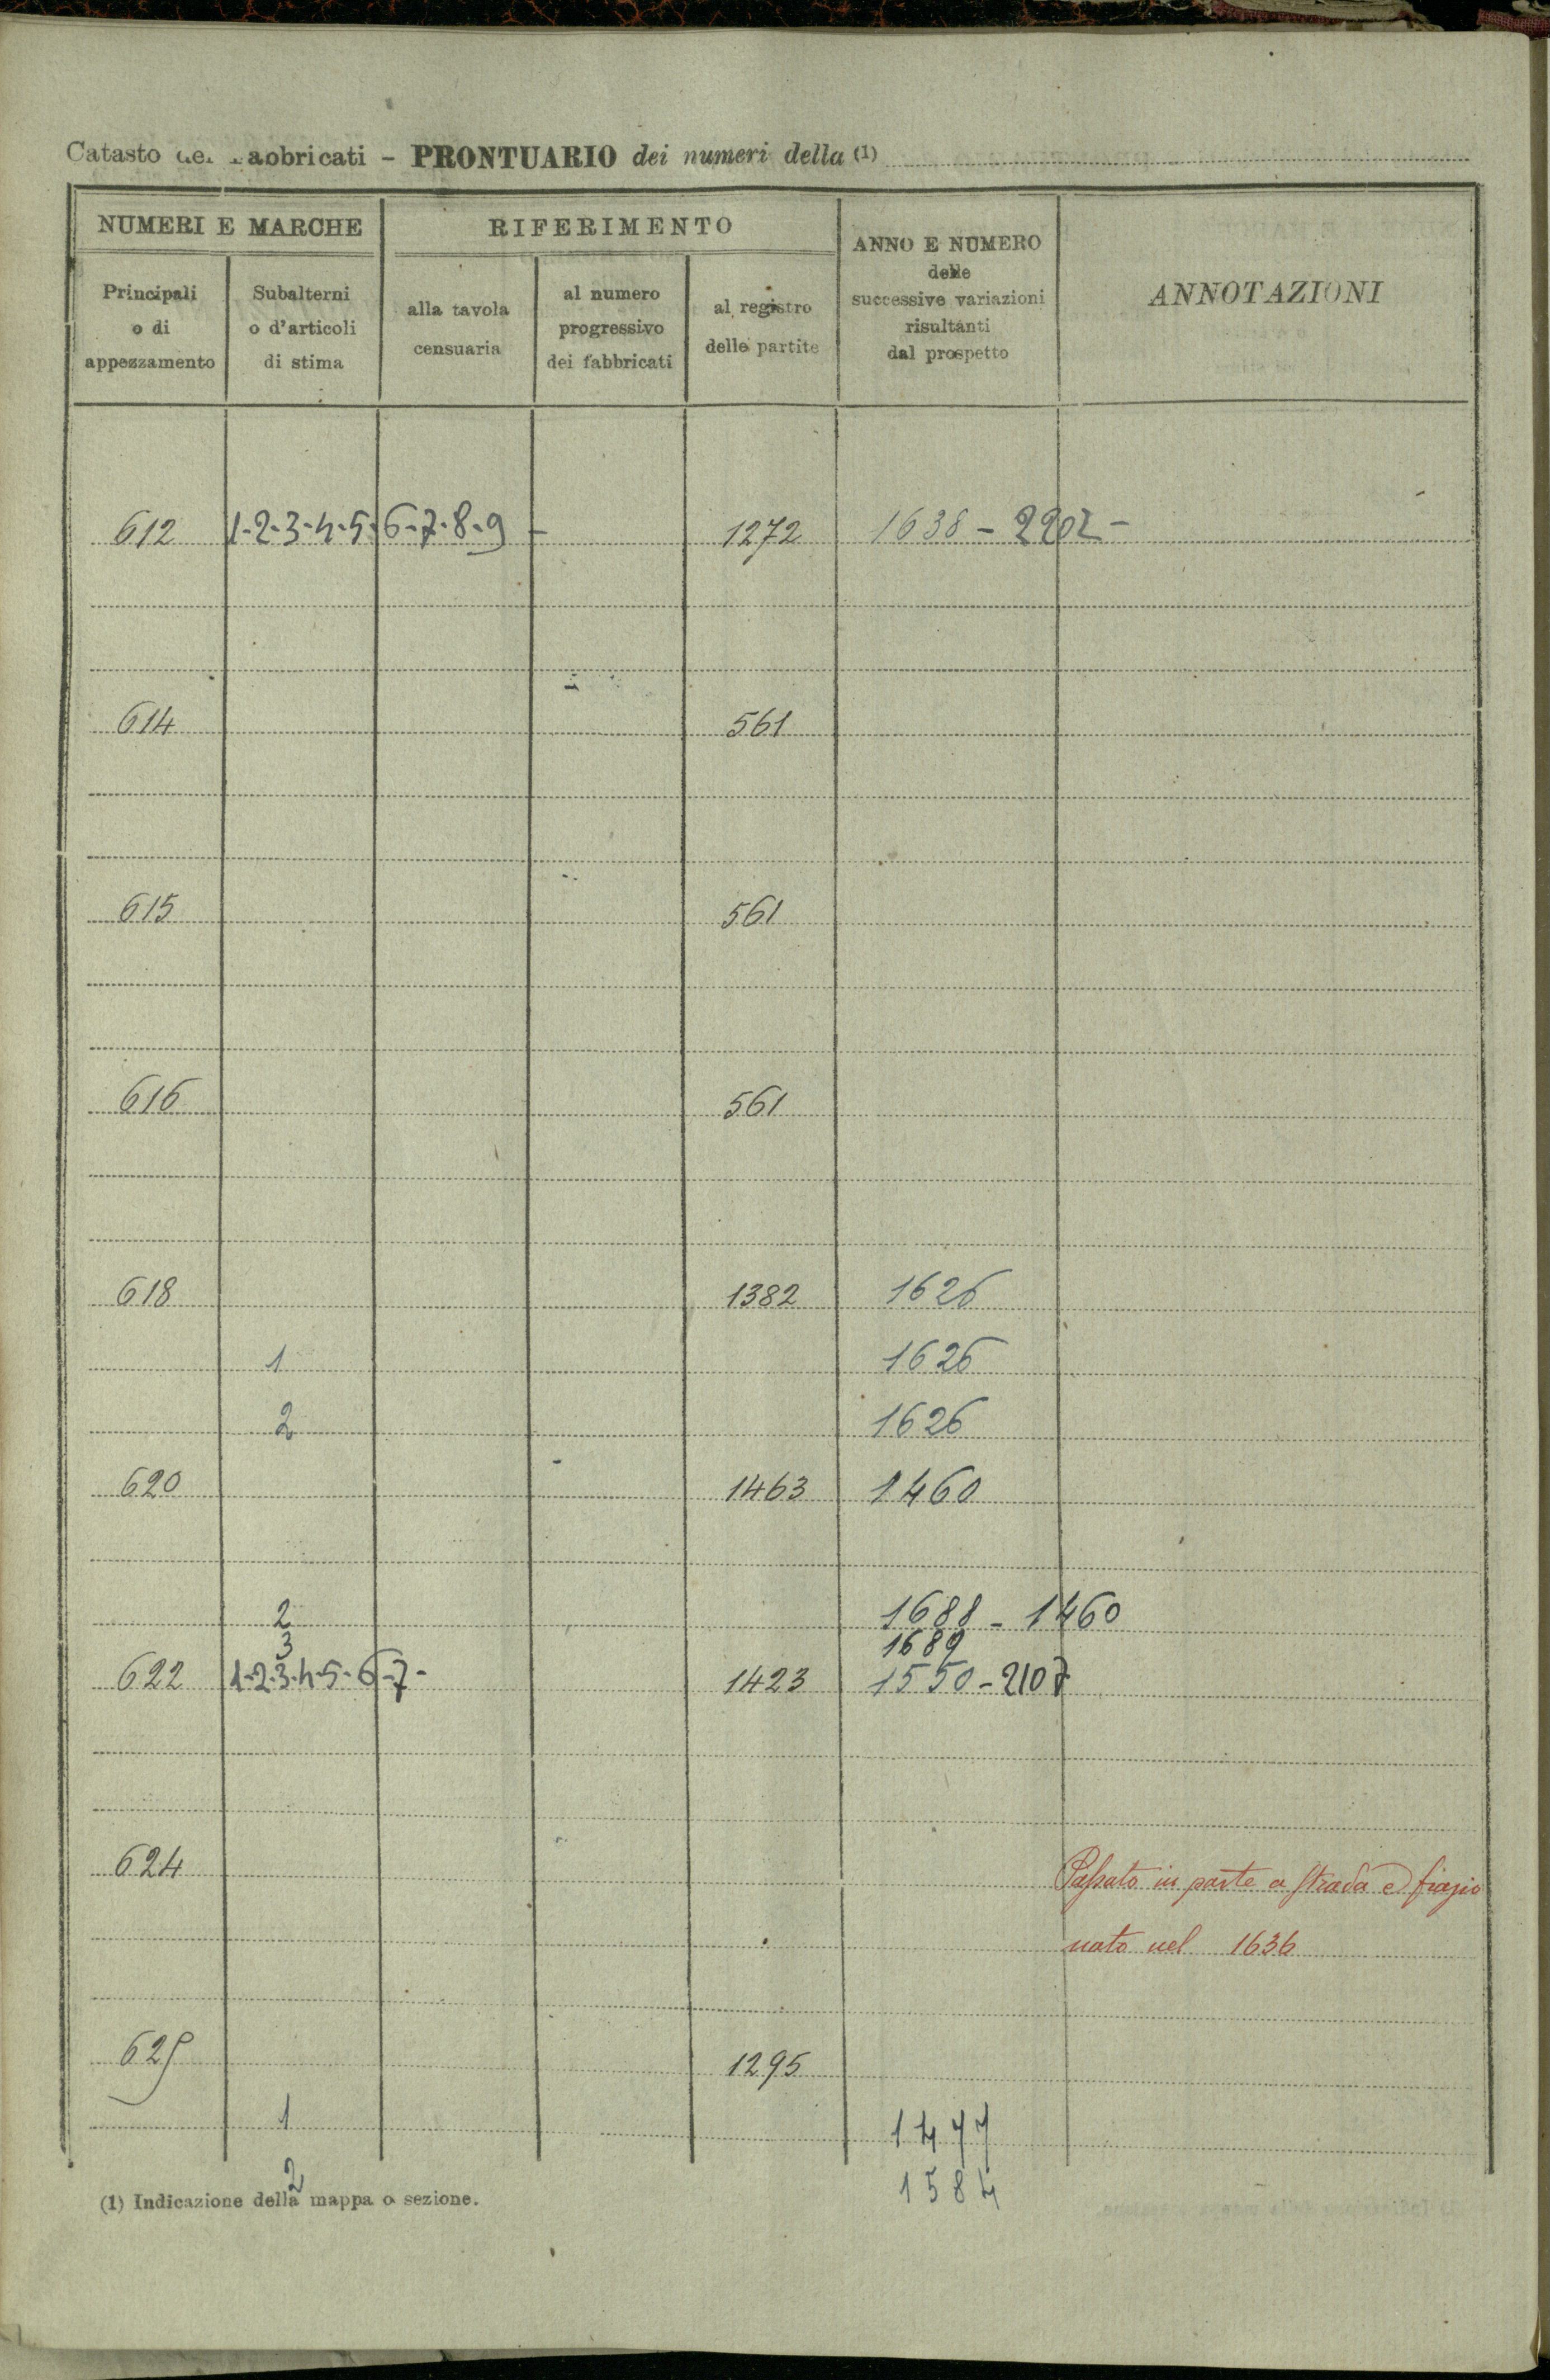 Catasto dei Fabbricati - PRONTUARIO dei numeri della (1)
NUMERI E MARCHE
RIFERIMENTO
ANNO E NUMERO
delle
successive variazioni
risultanti
dal prospetto
ANNOTAZIONI
Principali
o di
appezzamento
Subalterni
o d'articoli
di stima
alla tavola
censuaria
al numero
progressivo
dei fabbricati
al registro
delle partite
612 1-2-3-4-5-6-7-8-9 - 1272 1638 - 2202 -
614 561
615 561
616 561
618 1382 1626
1 1626
2 1626
620 1463 1460
2 1688 - 1460
3 1689
622 1-2-3-4-5-6-7- 1423 1550 - 2107
624 Passato in parte a strada e
nato nel 1636
625 1295
1 1477
2 1584
(1) Indicazione della mappa o sezione.